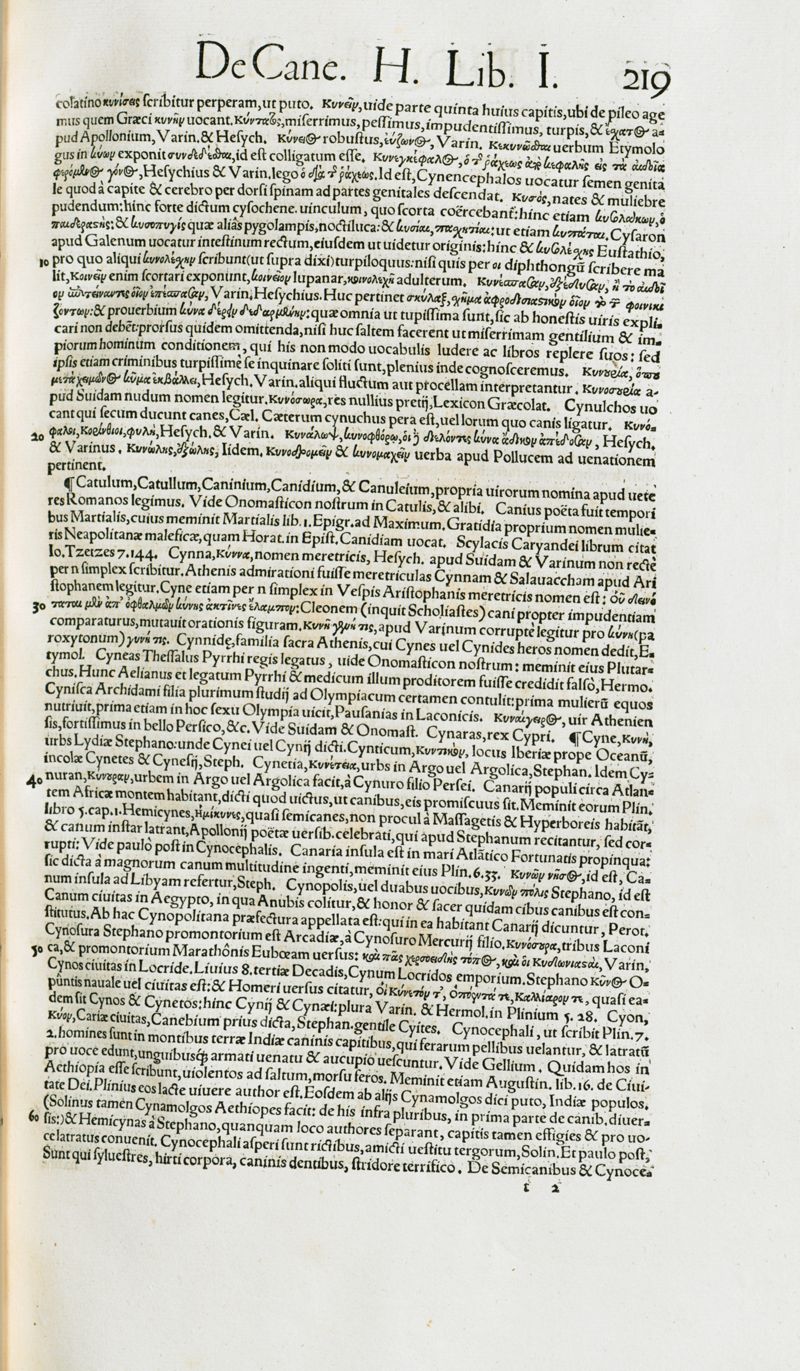 De Cane. H. Lib. I. 219
co latino κυνίσεις scribitur perperam, ut puto. Κυνέην, uide parte quinta huius capitis, ubi de pileo age
mus quem Græci κυνῆν uocant. Κύντατος, miserrimus, pessimus, impudentissimus, turpis, & a-
pud Apollonium, Varin. & Hesych. robustus, Varin. uerbum Etymolo
gus in κύων exponit id est colligatum esse.
Hesychius & Varin. lego Id est, Cynencephalos uocatur semen genita
le quod à capite & cerebro per dorsi spinam ad partes genitales descendat. Κυσός, nates & muliebre
pudendum: hinc forte dictum cysochene. uinculum, quo scorta coërcebant: hinc etiam
& κυσοπυγὶς quæ aliàs pygolampis, noctiluca: & ut etiam Cysaron
apud Galenum uocatur intestinum rectum, eiusdem ut uidetur originis: hinc & Eustathio,
10 pro quo aliqui κυνολέχην scribunt (ut supra dixi) turpiloquus: nisi quis per οι diphthongū scribere ma
lit, Κοινεῖν enim scortari exponunt, κοινεῖον lupanar, adulterum.
Varin, Hesychius. Huc pertinet σκύλαξ, σχῆμα ἀφροδισιαστικὸν
& prouerbium quæ omnia ut tupissima sunt, sic ab honestis uiris expli
cari non debēt: prorsus quidem omittenda, nisi huc saltem facerent ut miserrimam gentilium & im
piorum hominum conditionem, qui his non modo uocabulis ludere ac libros replere suos: sed
ipsis etiam criminibus turpissimè se inquinare soliti sunt, plenius inde cognosceremus.
Hesych. Varin. aliqui fluctum aut procellam interpretantur. a-
pud Suidam nudum nomen legitur. Κυνόσουρα, res nullius pretij, Lexicon Græcolat. Cynulchos uo
cant qui secum ducunt canes, Cæl. Cæterum cynuchus pera est, uel lorum quo canis ligatur. Κυνό-
20 φαλοι, Κορίνθιοι, φυλή, Hesych. & Varin. Hesych.
& Varinus. Iidem. Κυνοδρομεῖν & κυνομαχεῖν uerba apud Pollucem ad uenationem
pertinent.
¶ Catulum, Catullum, Caninium, Canidium, & Canuleium, propria uirorum nomina apud uete
res Romanos legimus. Vide Onomasticon nostrum in Catulis, & alibi. Canius poëta fuit tempori
bus Martialis, cuius meminit Martialis lib. 1. Epigr. ad Maximum. Gratidia proprium nomen mulie-
ris Neapolitanæ maleficæ, quam Horat. in Epist. Canidiam uocat. Scylacis Caryandei librum citat
Io. Tzetzes 7.144. Cynna, Κύννα, nomen meretricis, Hesych. apud Suidam & Varinum non rectè
per n simplex scribitur. Athenis admirationi fuisse meretriculas Cynnam & Salauaccham apud Ari
stophanem legitur. Cyne etiam per n simplex in Vespis Aristophanis meretricis nomen est:
30 Cleonem (inquit Scholiastes) cani propter impudentiam
comparaturus, mutauit orationis figuram. apud Varinum corruptè legitur pro κύνη (pa
roxytonum) γυνή τις. Cynnidę, familia sacra Athenis, cui Cynes uel Cynides heros nomen dedit, E-
tymol. Cyneas Thessalus Pyrrhi regis legatus, uide Onomasticon nostrum: meminit eius Plutar-
chus. Hunc Aelianus et legatum Pyrrhi & medicum illum proditorem fuisse credidit falsò, Hermo.
Cynisca Archidami filia plurimum studij ad Olympiacum certamen contulit: prima mulierū equos
nutriuit, prima etiam in hoc sexu Olympia uicit, Pausanias in Laconicis. Κυναίγειρος, uir Athenien
sis, fortissimus in bello Persico, &c. Vide Suidam & Onomast. Cynaras, rex Cypri. ¶ Cyne, Κυνή,
urbs Lydiæ Stephano: unde Cynei uel Cynij dicti. Cynticum, Κυντικόν, locus Iberiæ prope Oceanū,
incolæ Cynetes & Cynesij, Steph. Cynetia, Κυνέτεια, urbs in Argo uel Argolica, Stephan. Idem Cy-
40 nuran, Κύνουραν, urbem in Argo uel Argolica facit, à Cynuro filio Persei. Canarij populi circa Atlan-
tem Africæ montem habitant, dicti quod uictus, ut canibus, eis promiscuus sit. Meminit eorum Plin.
libro 5. cap. 1. Hemicynes, Ἡμίκυνες, quasi semicanes, non procul à Massagetis & Hyperboreis habitāt,
& canum instar latrant, Apollonij poëtæ uersib. celebrati, qui apud Stephanum recitantur, sed cor-
rupti: Vide paulò pòst in Cynocephalis. Canaria insula est in mari Atlātico Fortunatis propinqua:
sic dicta à magnorum canum multitudine ingenti, meminit eius Plin. 6.33. Κυνῶν νῆσος, id est, Ca-
num insula ad Libyam refertur, Steph. Cynopolis, uel duabus uocibus, Κυνῶν πόλις Stephano, id est
Canum ciuitas in Aegypto, in qua Anubis colitur, & honor & sacer quidam cibus canibus est con-
stitutus. Ab hac Cynopolitana præfectura appellata est: qui in ea habitant Canarij dicuntur, Perot.
Cynosura Stephano promontorium est Arcadiæ, à Cynosuro Mercurij filio, Κυνόσουρα, tribus Laconi
50 ca, & promontorium Marathônis Eubœam uersus: Varin.
Cynos ciuitas in Locride. Liuius 8. tertiæ Decadis, Cynum Locridos emporium. Stephano Κῦνος O-
pūntis nauale uel ciuitas est: & Homeri uersus citatur, quasi ea-
dem sit Cynos & Cynetos: hinc Cynij & Cynæi: plura Varin. & Hermol. in Plinium 5. 28. Cyon,
Κύον, Cariæ ciuitas, Canebium prius dicta, Stephan. gentile Cyites. Cynocephali, ut scribit Plin. 7.
2. homines sunt in montibus terræ Indiæ caninis capitibus, qui ferarum pellibus uelantur, & latratū
pro uoce edunt, unguibusq́; armati uenatu & aucupio uescuntur. Vide Gellium. Quidam hos in
Aethiopia esse scribunt, uiolentos ad saltum, morsu feros. Meminit etiam Augustin. lib. 16. de Ciui-
tate Dei. Plinius eos lacte uiuere author est. Eosdem ab alijs Cynamolgos dici puto, Indiæ populos.
(Solinus tamen Cynamolgos Aethiopes facit: de his infra pluribus, in prima parte de canib. diuer-
60 sis:) & Hemicynas à Stephano, quanquam loco authores separant, capitis tamen effigies & pro uo-
ce latratus conuenit. Cynocephali asperi sunt rictibus, amicti uestitu tergorum, Solin. Et paulo pòst,
Sunt qui syluestres, hirti corpora, caninis dentibus, stridore terrifico. De Semicanibus & Cynoce-
t 2